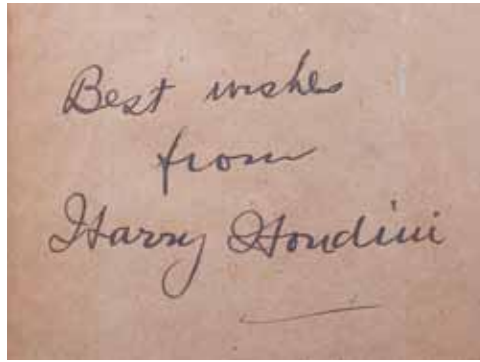 Best wishes
from
Harry Houdini